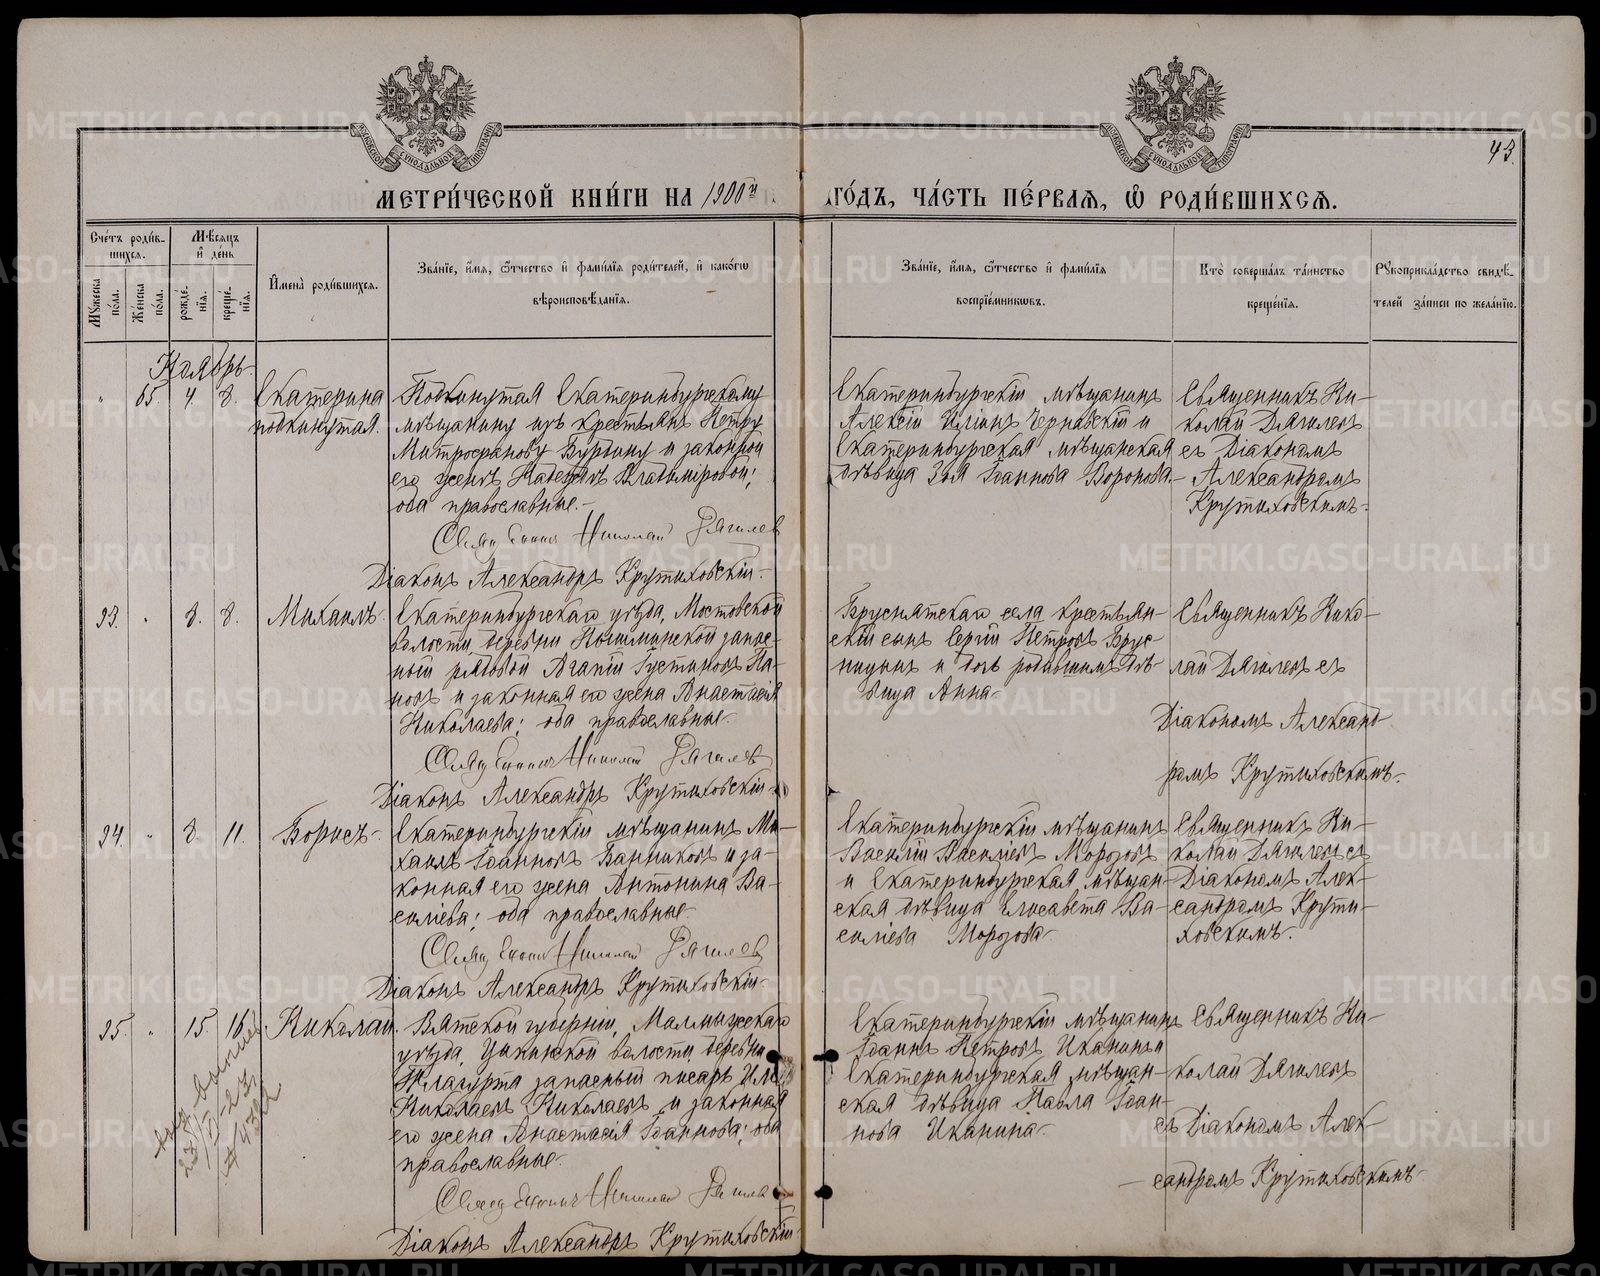 43.
МЕТРИ́ЧЕСКОЙ КНИ́ГИ НА 1900й ГО́ДЪ, ЧА́СТЬ ПЕ́РВАЯ, Ѡ РОДИ́ВШИХСЯ.
Сче́тъ роди́в-
шихся.
Му́жеска по́ла.
Же́нска по́ла.
Мѣ́сяцъ
и де́нь
рожде́-
нїя.
креще́-
нїя.
Имена̀ роди́вшихся.
Зва́нїе, и́мя, о́тчество и фами́лїя роди́телей, и како́гѡ
вѣроисповѣ́данїя.
Зва́нїе, и́мя, о́тчество и фами́лїя
воспрїе́мниковъ.
Кто̀ соверша́лъ та́инство
креще́нїя.
Рукоприкла́дство свидѣ́-
телей за́писи по жела́нїю.
Ноябрь
" 65. 4. 8.
Екатерина
подкинутая.
Подкинутая Екатеринбургскому
мѣщанину изъ крестьянъ Петру
Митрофанову Бурдину и законной
его женѣ Надеждѣ Владиміровой;
оба православные.-
Священникъ Николай Дягилев
Діаконъ Александръ Крутиховскій.
Екатеринбургскій мѣщанинъ
Алексій Ильинъ Чернавскій и
Екатеринбургская мѣщанская
дѣвица Зоя Іоаннова Воронова.
Священникъ Ни-
колай Дягилевъ
съ Діакономъ
Александромъ
Крутиховскимъ.
93. " 8. 8.
Михаилъ.
Екатеринбургскаго уѣзда, Мостовской
волости, деревни Пышминской запас-
ный рядовой Агапій Густиновъ Па-
новъ и законная его жена Анастасія
Николаева; оба православные.
Священникъ Николай Дягилев
Діаконъ Александръ Крутиховскій.
Бруснятскаго села крестьян-
скій сынъ Сергій Петровъ Брус-
ницынъ и дочь родившимъ дѣ-
вица Анна.
Священникъ Нико-
лай Дягилевъ съ
Діакономъ Александ-
ромъ Крутиховскимъ.
94. " 8. 11.
Борисъ.
Екатеринбургскій мѣщанинъ Ми-
хаилъ Іоанновъ Банниковъ и за-
конная его жена Антонина Ва-
сильева; оба православные.
Священникъ Николай Дягилев
Діаконъ Александръ Крутиховскій.
Екатеринбургскій мѣщанинъ
Василій Васильевъ Морозовъ
и Екатеринбургская мѣщан-
ская дѣвица Елисавета Ва-
сильева Морозова.
Священникъ Ни-
колай Дягилевъ съ
Діакономъ Алек-
сандромъ Крути-
ховскимъ.
95. " 15. 16.
Николай.
Вятской губерніи, Малмыжскаго
уѣзда, деревни
запасный писарь
Николаевъ Николаевъ и законная
его жена Анастасія Іоаннова; оба
православные.
Священникъ Николай Дягилев
Діаконъ Александръ Крутиховскій.
Екатеринбургскій мѣщанинъ
Іоаннъ Петровъ Иканинъ и
Екатеринбургская мѣщан-
ская дѣвица Павла Іоан-
нова Иканина.
Священникъ Ни-
колай Дягилевъ
съ Діакономъ Алек-
сандромъ Крутиховскимъ.
METRIKI.GASO-URAL.RU